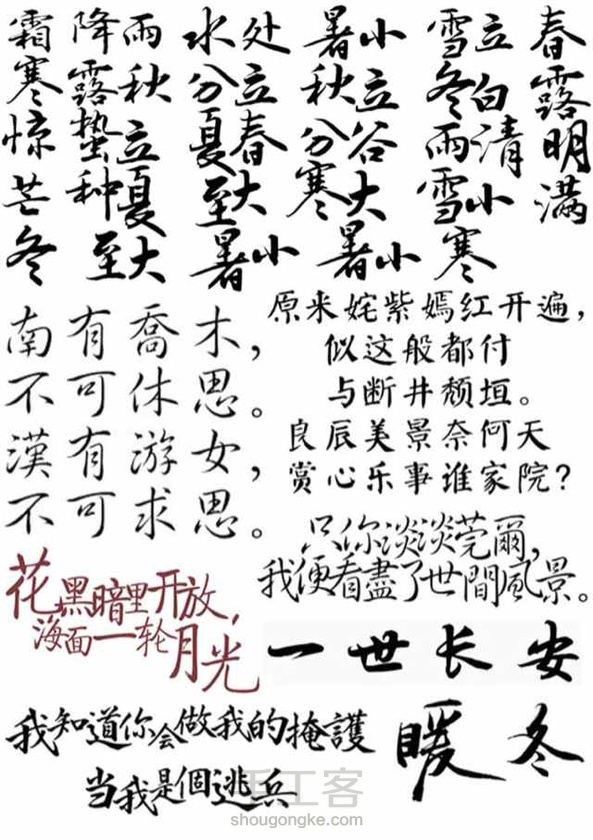 霜降雨水处暑小雪立春
寒露秋分立秋立冬白露
惊蛰立夏春分谷雨清明
芒种夏至大寒大雪小满
冬至大暑小暑小寒
南有喬木，
不可休思。
漢有游女，
不可求思。
原来姹紫嫣红开遍，
似这般都付
与断井颓垣。
良辰美景奈何天
赏心乐事谁家院？
只你淡淡莞爾，
我便看盡了世間風景。
花黑暗里开放，
海面一轮月光
一世长安
我知道你会做我的掩護
当我是個逃兵
暖冬
手工客
shougongke.com